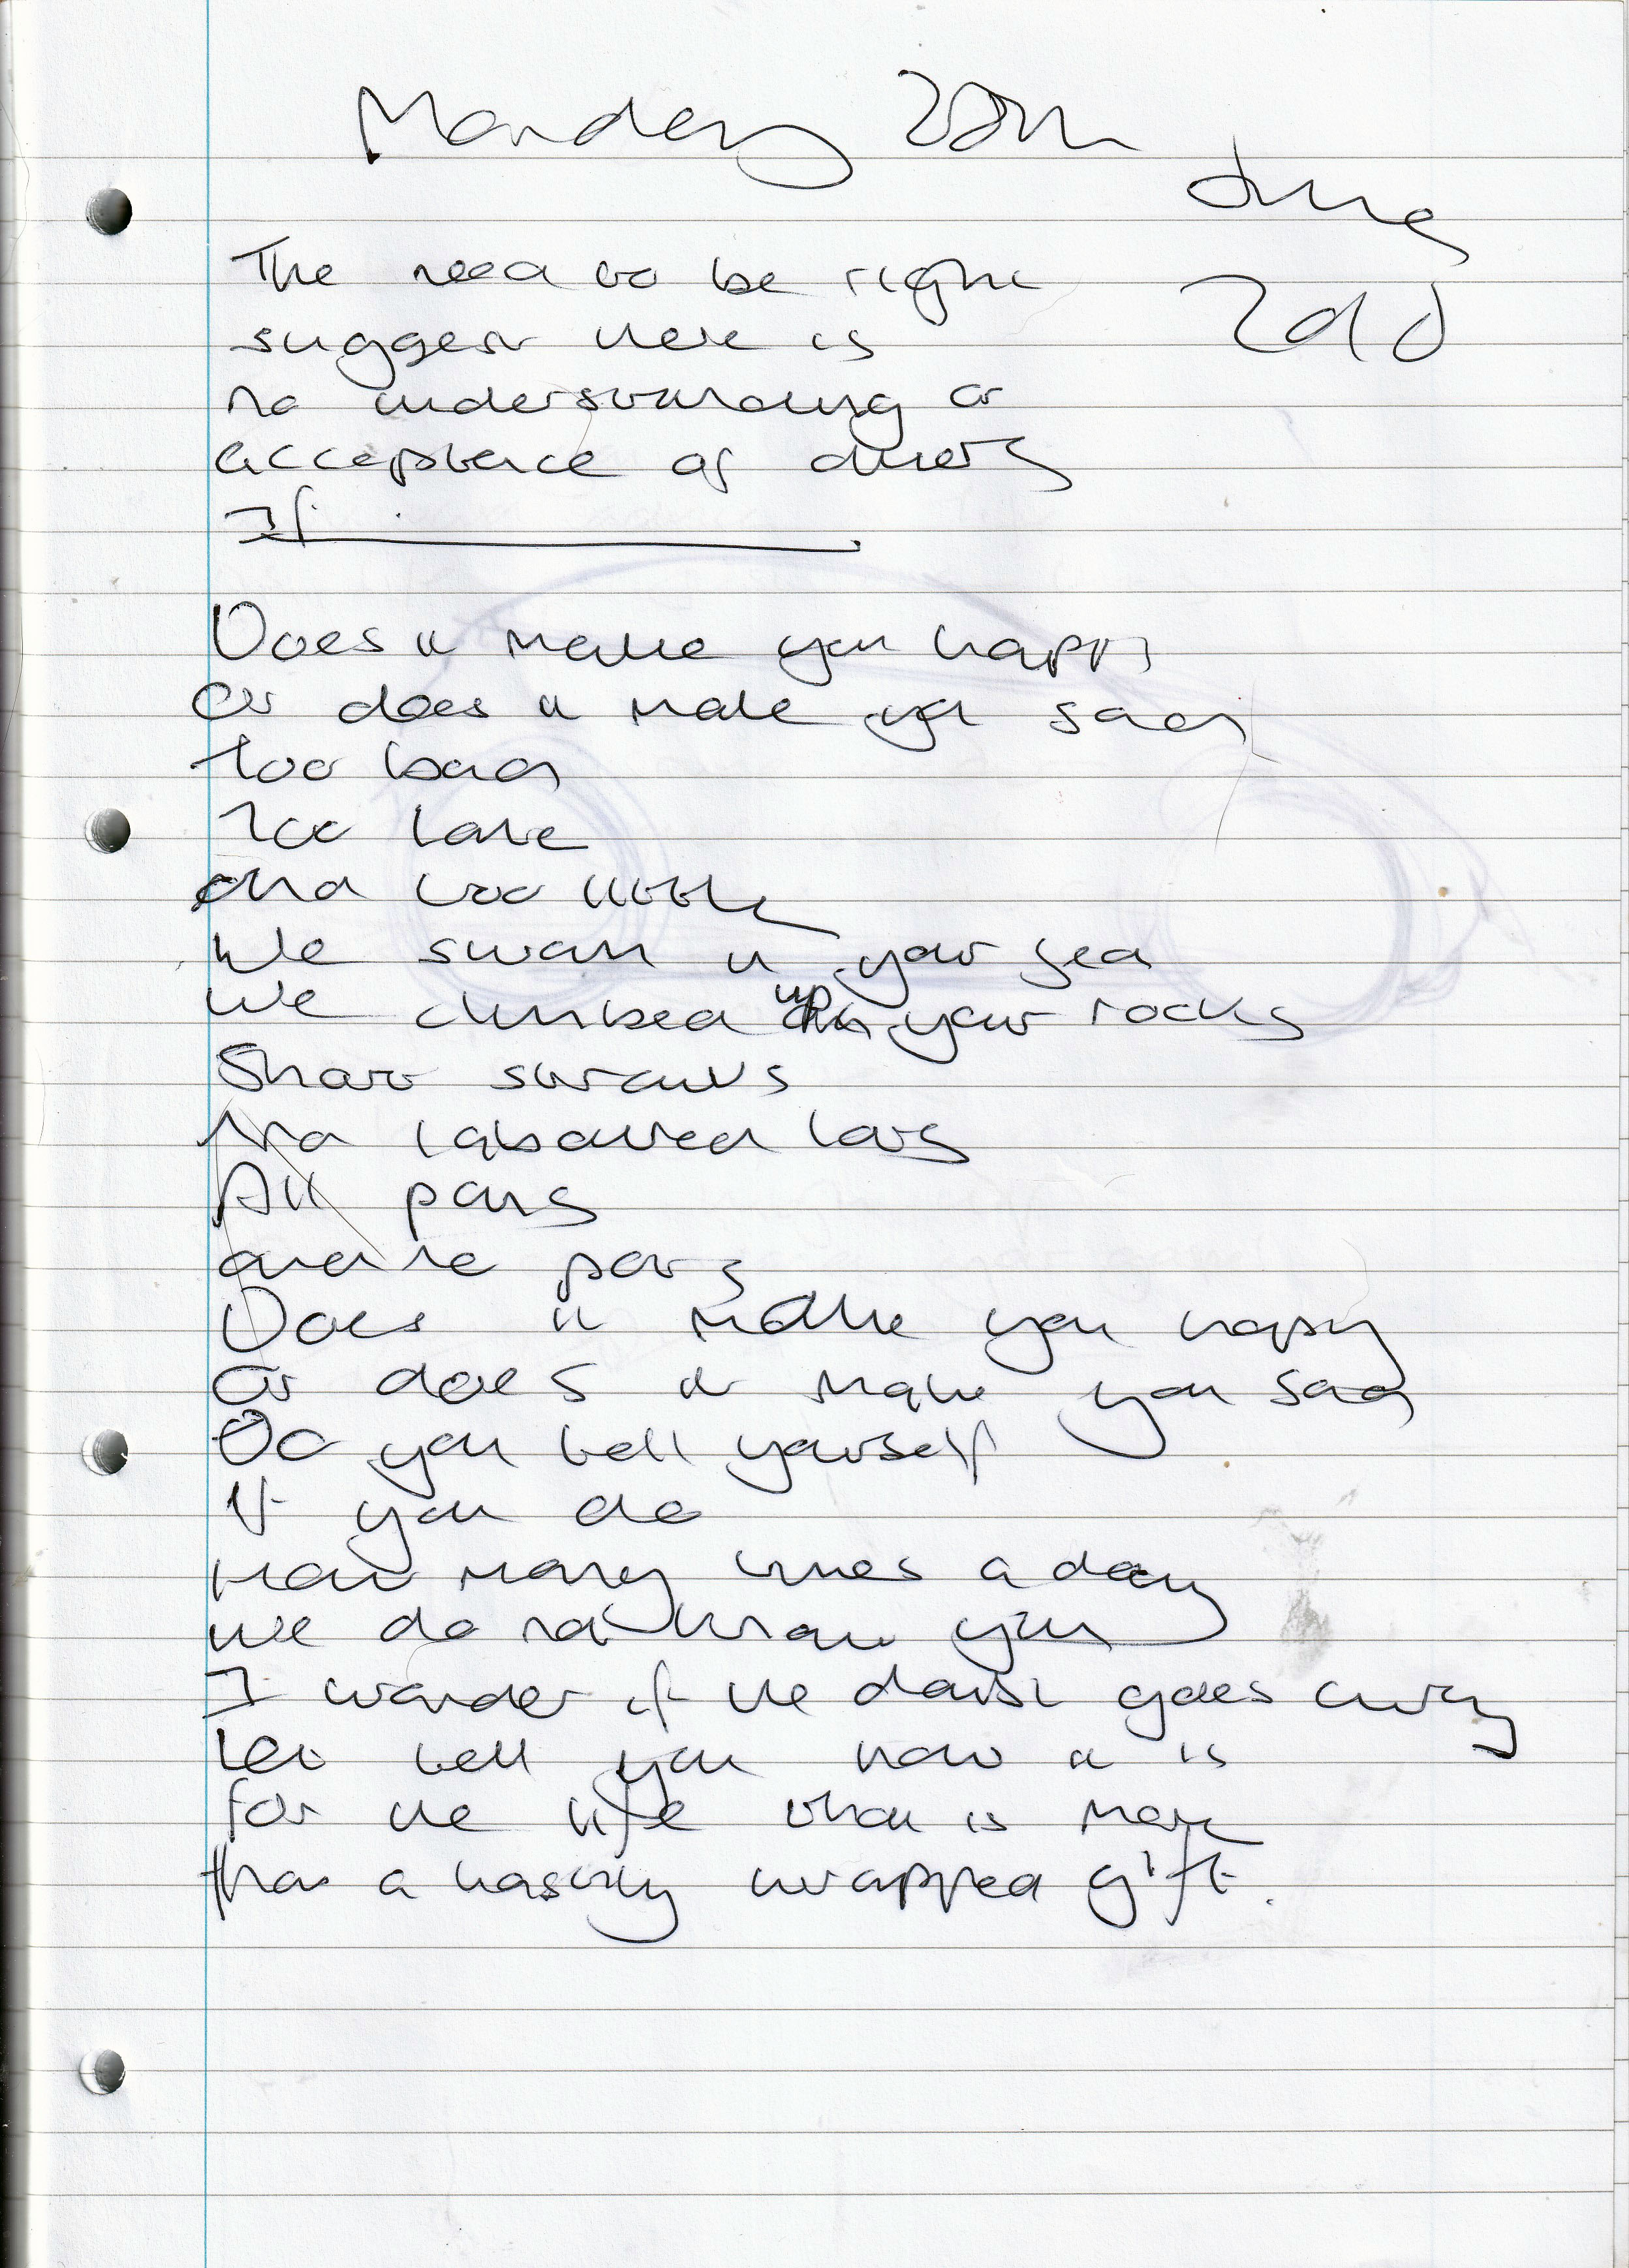 Monday 28th
June
2010
The need to be right
suggest there is
no understanding or
acceptance of diversity
If
Does it make you happy
or does it make you sad
too bad
Too late
and too little
We swam in your sea
We climbed up your rocks
Short straws
All
Does it make you happy
or does it make you sad
Do you tell yourself
If you do
How many times a day
we do not know you
I wonder if the doubt goes away
Let tell you how it is
for the life that is more
than a hastily wrapped gift.